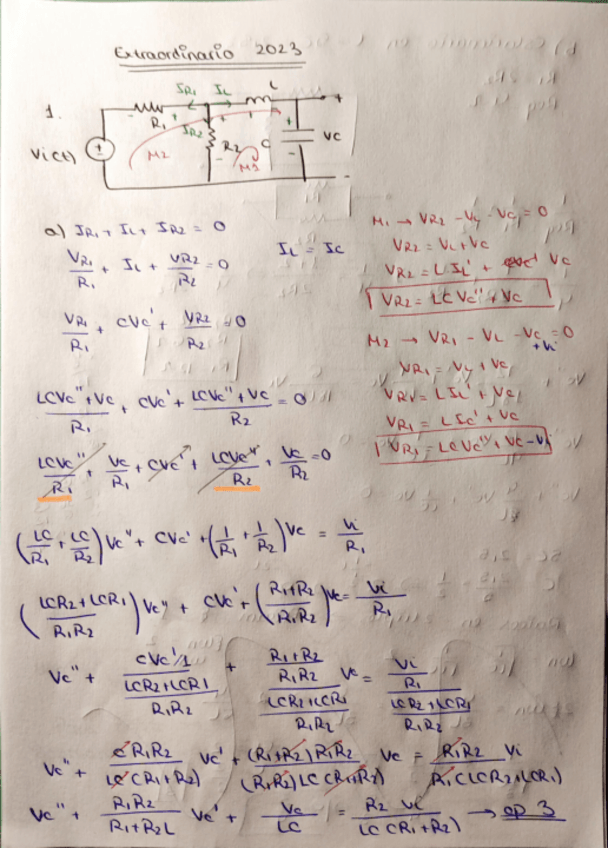 Extraordinario 2023
1.
IR1 IL L
R1 IR2 R2 C VC
Vi(t) M2 M3
a) IR1 + IL + IR2 = 0
VR1/R1 + IL + VR2/R2 = 0
IL = IC
VR1/R1 + CVc' + VR2/R2 = 0
(LCVc'' + Vc)/R1 + CVc' + (LCVc'' + Vc)/R2 = 0
LCVc''/R1 + Vc/R1 + CVc' + LCVc''/R2 + Vc/R2 = 0
(LC/R1 + LC/R2) Vc'' + CVc' + (1/R1 + 1/R2) Vc = Vi/R1
((LCR2 + LCR1)/R1R2) Vc'' + CVc' + ((R1+R2)/R1R2) Vc = Vi/R1
Vc'' + (CVc'/1)/((LCR2+LCR1)/R1R2) + ((R1+R2)/R1R2)/((LCR2+LCR1)/R1R2) Vc = (Vi/R1)/((LCR2+LCR1)/R1R2)
Vc'' + C R1R2/(LC(R1+R2)) Vc' + (R1+R2)R1R2/((R1R2)LC(R1+R2)) Vc = R1R2 Vi/(R1(LCR2+LCR1))
Vc'' + R1R2/(R1+R2L) Vc' + Vc/LC = R2 Vi/(LC(R1+R2)) → op 3
M1 → VR2 - VL - VC = 0
VR2 = VL + VC
VR2 = L IL' + VC
VR2 = LC Vc'' + Vc
M2 → VR1 - VL - VC = 0
+Vi
VR1 = VL + VC
VR1 = L IL' + VC
VR1 = L IC' + VC
VR1 = LC Vc'' + Vc - Vi